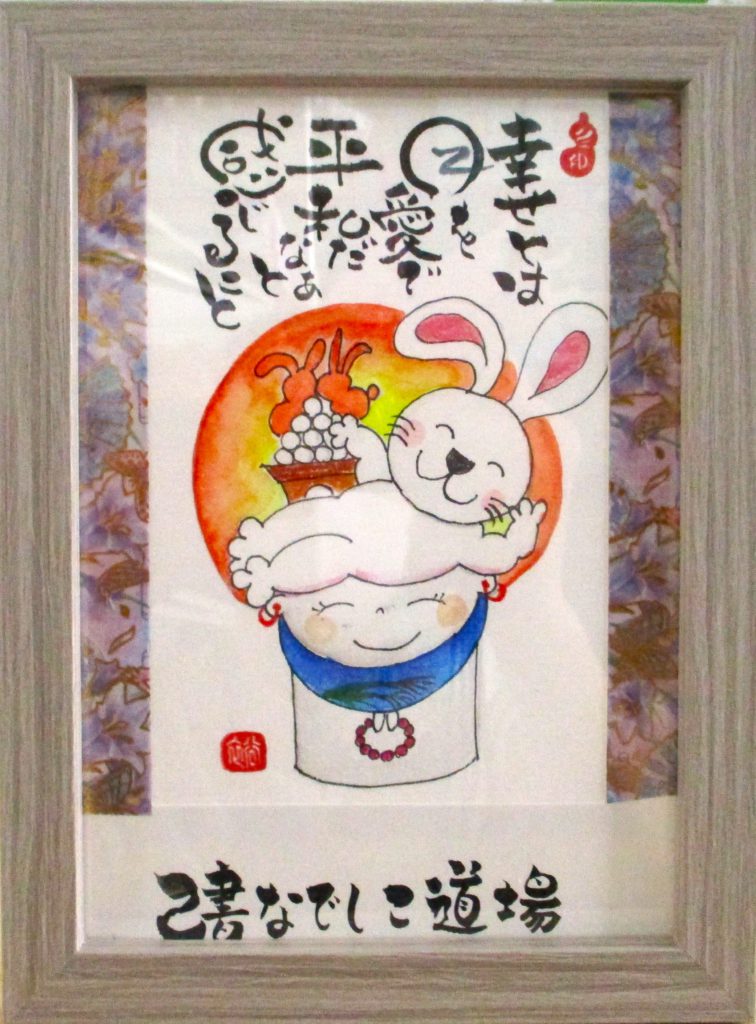 幸せとは
己を
愛で
平和だ
なぁと
感じること
己書なでしこ道場